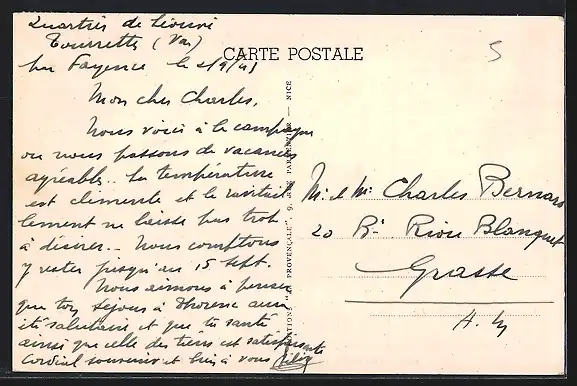 Quartier de Liouvi
Tourrettes (Var)
par Fayence le 2/9/41
CARTE POSTALE
5
Mon cher Charles,
Nous voici à la campagne
où nous passons de vacances
agréables.. La température
est clemente et le ravitail
lement ne laisse pas trop
à désirer.. Nous comptons
y rester jusqu'au 15 Sept.
Nous aimons à penser
que ton séjour à Thorenc aura
été salutaire et que ta santé
ainsi que celle des tiens est satisfaisante
Cordial souvenir et bien à vous
ÉDITIONS "LA PROVENÇALE", 9, RUE — NICE
Mr & Me Charles Bernard
20 Bd Riou Blanquet
Grasse
A. M